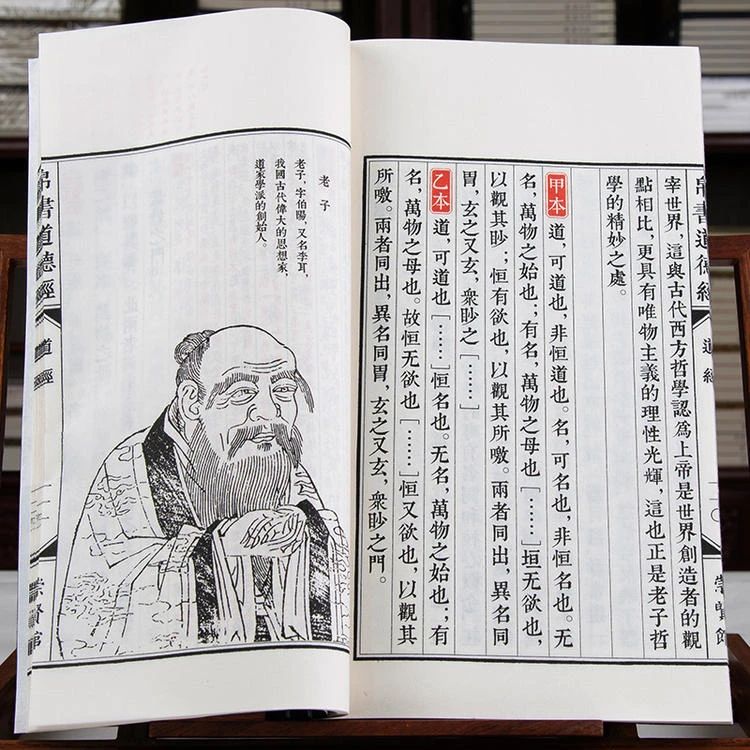 帛書道德經
道經
崇賢館
宰世界，這與古代西方哲學認爲上帝是世界創造者的觀
點相比，更具有唯物主義的理性光輝，這也正是老子哲
學的精妙之處。
甲本 道，可道也，非恒道也。名，可名也，非恒名也。无
名，萬物之始也；有名，萬物之母也[……]垣无欲也，
以觀其眇；恒有欲也，以觀其所噭。兩者同出，異名同
胃，玄之又玄，衆眇之[……]
乙本 道，可道也[……]恒名也。无名，萬物之始也；有
名，萬物之母也。故恒无欲也[……]恒又欲也，以觀其
所噭。兩者同出，異名同胃，玄之又玄，衆眇之門。
老子
老子，字伯陽，又名李耳，
我國古代偉大的思想家，
道家學派的創始人。
帛書道德經
道經
崇賢館